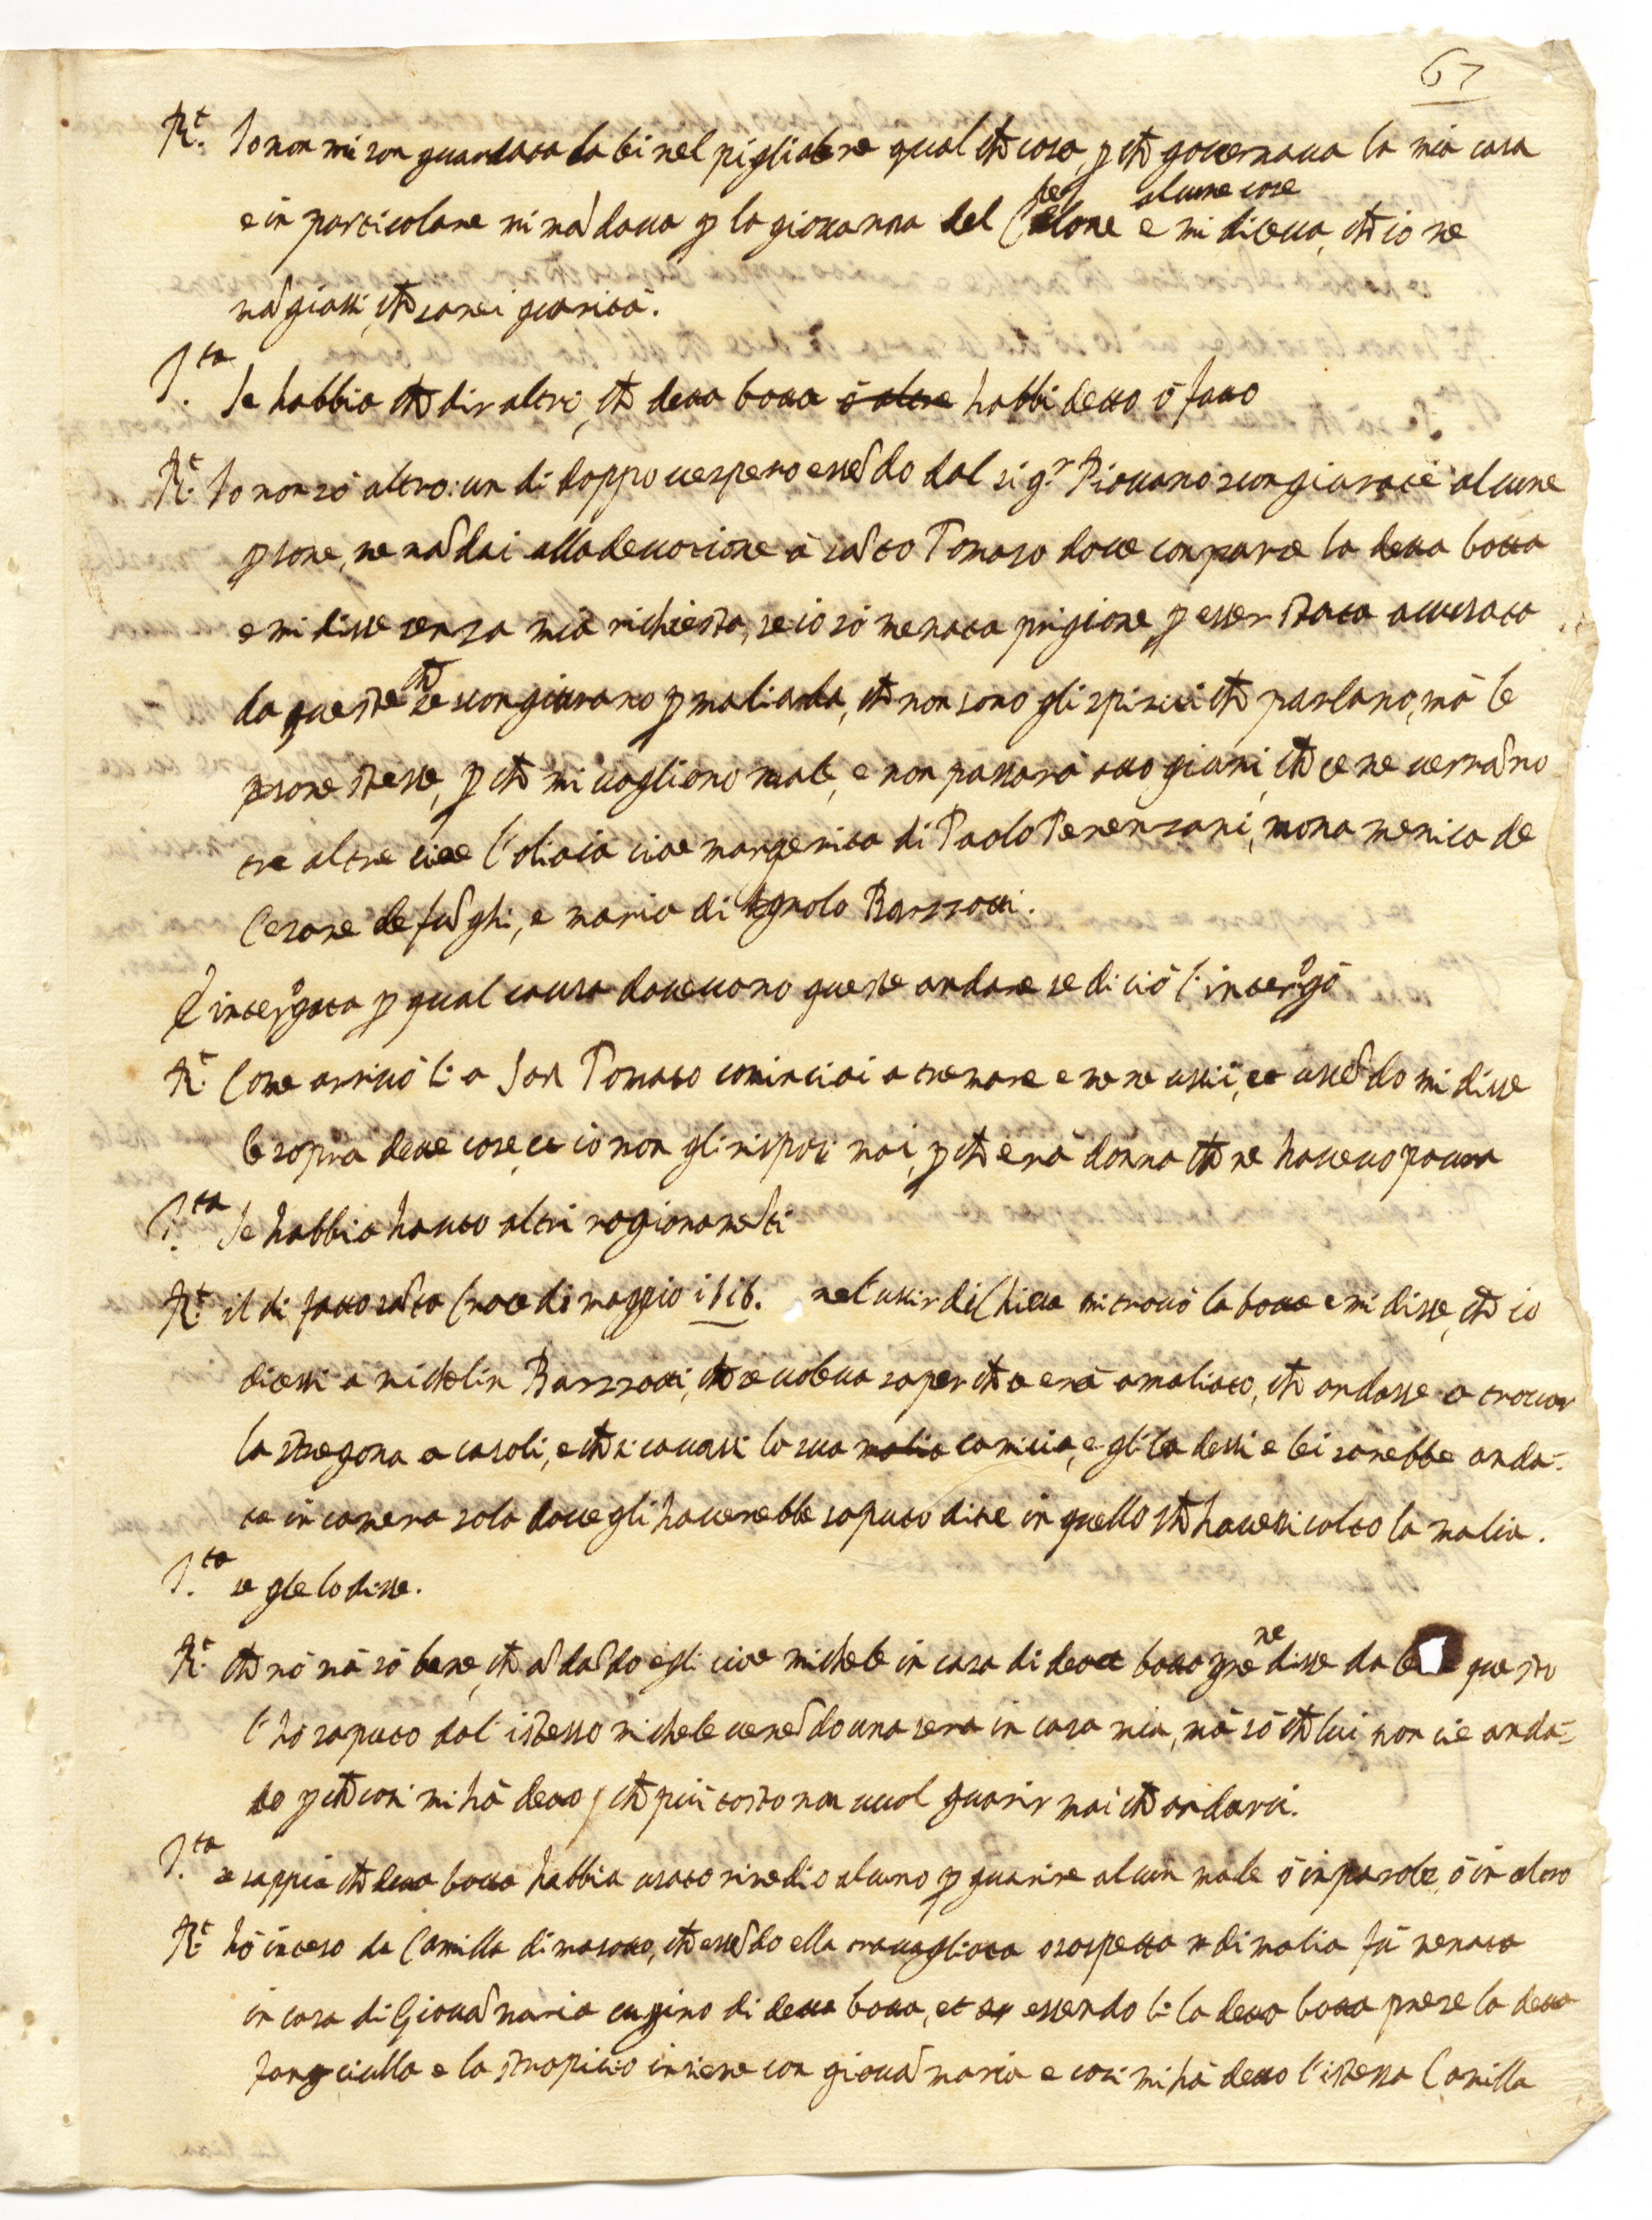 67
R.t Io non mi son guardata da lei nel pigliarne qual ch̃ cosa, p ch̃ governava la mia casa
e in particolare mi mãdava p la giovanna del Celone per alcune cose e mi diceva, ch̃ io ne
mãgiassi, ch̃ sarei guarita.
I.ta Se habbia ch̃ dir altri, ch̃ detta botta ò altre habbi detto ò fatto
R.t Io non sò altro: un di doppo vespero essẽdo dal sig.r Piovano scongiurate alcune
psone, me nãdai alla devotione à sãto Tomaso dove comparve la detta botta
e mi disse senza mia richiesta, se io sò menata prigione p esser stata accusata
da queste ch̃ se scongiurano p maliarda, ch̃ non sono gli spiriti ch̃ parlano, mà le
psone stesse, p ch̃ mi vogliono male, e non passarà otto giorni, ch̃ ce ne verrãno
tre altre cioe l'oliata cioe margerita di Paolo Perenzani, mona menica de
Cesare de fũghi, e maria di Agnolo Barzzotti.
E interogata p qual causa dovevano queste andare se di ciò l'interogò
R.t Come arrivò lì a San Tomaso cominciai a tremare e me ne uscii, et uscẽdo mi disse
le sopra dette cose, et io non gli risposi mai, p ch̃ era donna ch̃ ne havevo paura
I.ta Se habbia hauto altri ragionamẽti
R.t il di fatto sãta Croce di maggio 1616. nel uscir di Chiesa mi trovò la botta e mi disse, ch̃ io
dicessi a michelin Barzzotti, ch̃ se voleva saper ch̃ era amaliato, ch̃ andasse a trovar
la stregona a casoli, e ch̃ si cavassi la sua malia camicia, e gli la dessi e lei sarebbe anda-
ta in camera sola dove gli haverebbe saputo dire in quello ch̃ havessi colto la malia.
I.ta se gle lo disse.
R.t ch̃ nò mà sò bene, ch̃ ãdãdo egli cioe michele in casa di detta botta ne disse da questo
l'hò saputo dal istesso michele venẽdo una sera in casa mia, mà sò ch̃ lui non cie anda-
to p ch̃ cosi mi hà detto, ch̃ più tosto non vuol guarir mai ch̃ andarci.
I.ta se sappia ch̃ detta botta habbia usato rimedio alcuno p guarire alcun male ò in parole, ò in altro
R.t hò inteso da Camilla di masotto, ch̃ essẽdo ella travagliata o sospetta di malia fù menata
in casa di Giovãmaria cugino di detta botta, et essendo lì la detta botta prese la detta
fangciulla e la stropiciò insieme con giovãmaria e cosi mi hà detto l'istessa Camilla